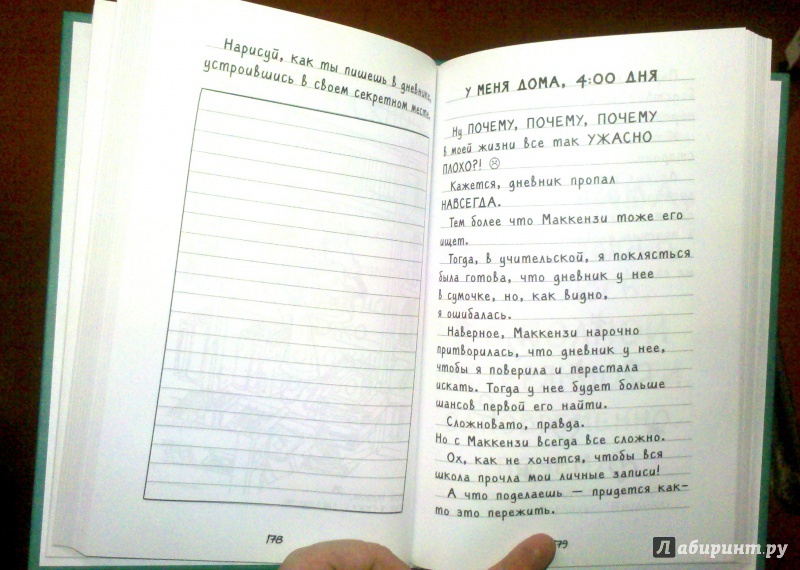 Нарисуй, как ты пишешь в дневнике,
устроившись в своем секретном месте.
178
У МЕНЯ ДОМА, 4:00 ДНЯ
Ну ПОЧЕМУ, ПОЧЕМУ, ПОЧЕМУ
в моей жизни все так УЖАСНО
ПЛОХО?! ☹
Кажется, дневник пропал
НАВСЕГДА.
Тем более что Маккензи тоже его
ищет.
Тогда, в учительской, я поклясться
была готова, что дневник у нее
в сумочке, но, как видно,
я ошибалась.
Наверное, Маккензи нарочно
притворилась, что дневник у нее,
чтобы я поверила и перестала
искать. Тогда у нее будет больше
шансов первой его найти.
Сложновато, правда.
Но с Маккензи всегда все сложно.
Ох, как не хочется, чтобы вся
школа прочла мои личные записи!
А что поделаешь — придется как-
то это пережить.
79
Лабиринт.ру